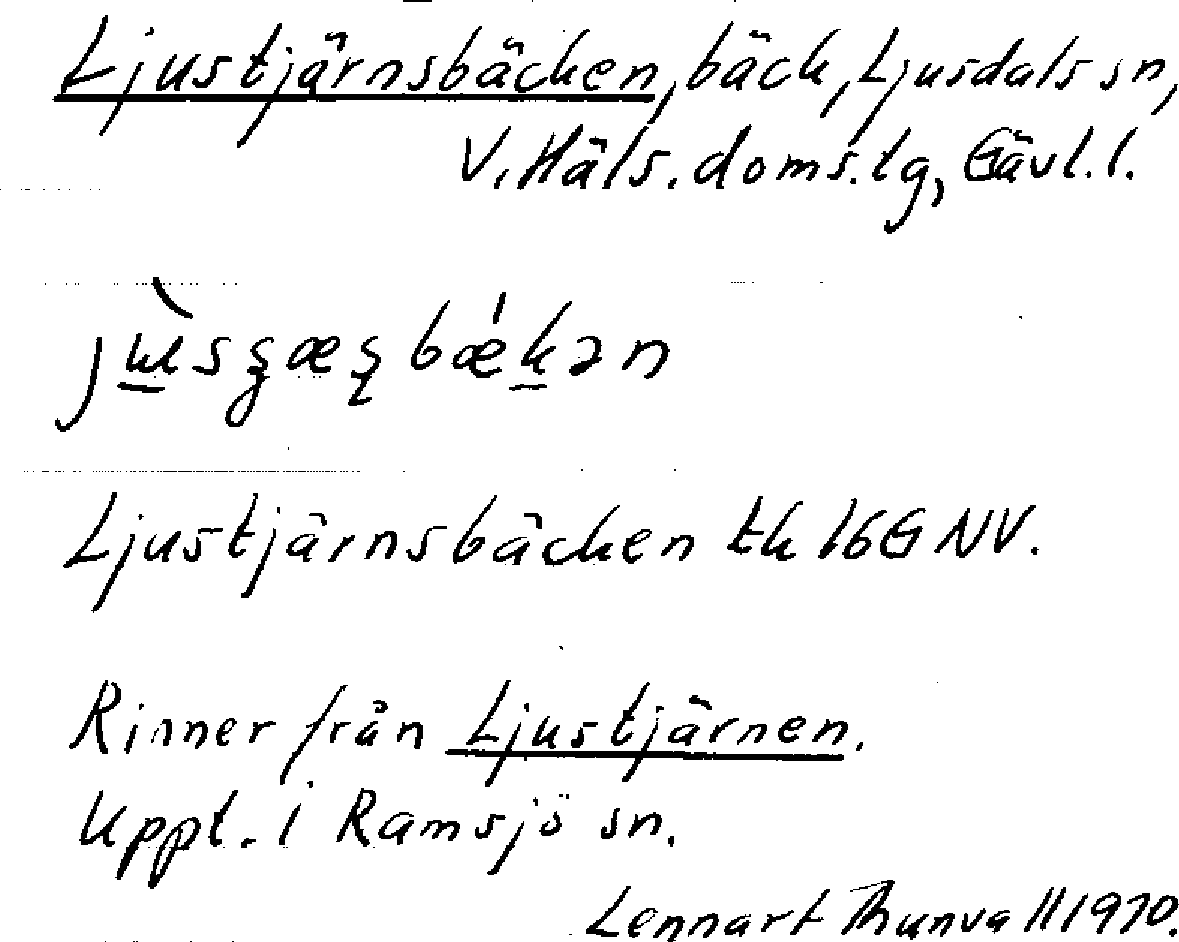 Ljustjärnsbäcken, bäck, Ljusdals sn,
V. Häls. doms.lg, Gävl. l.
Ljustjärnsbäcken tk 16G NV.
Rinner från Ljustjärnen.
Uppt. i Ramsjö sn.
Lennart Thunvall 1970.